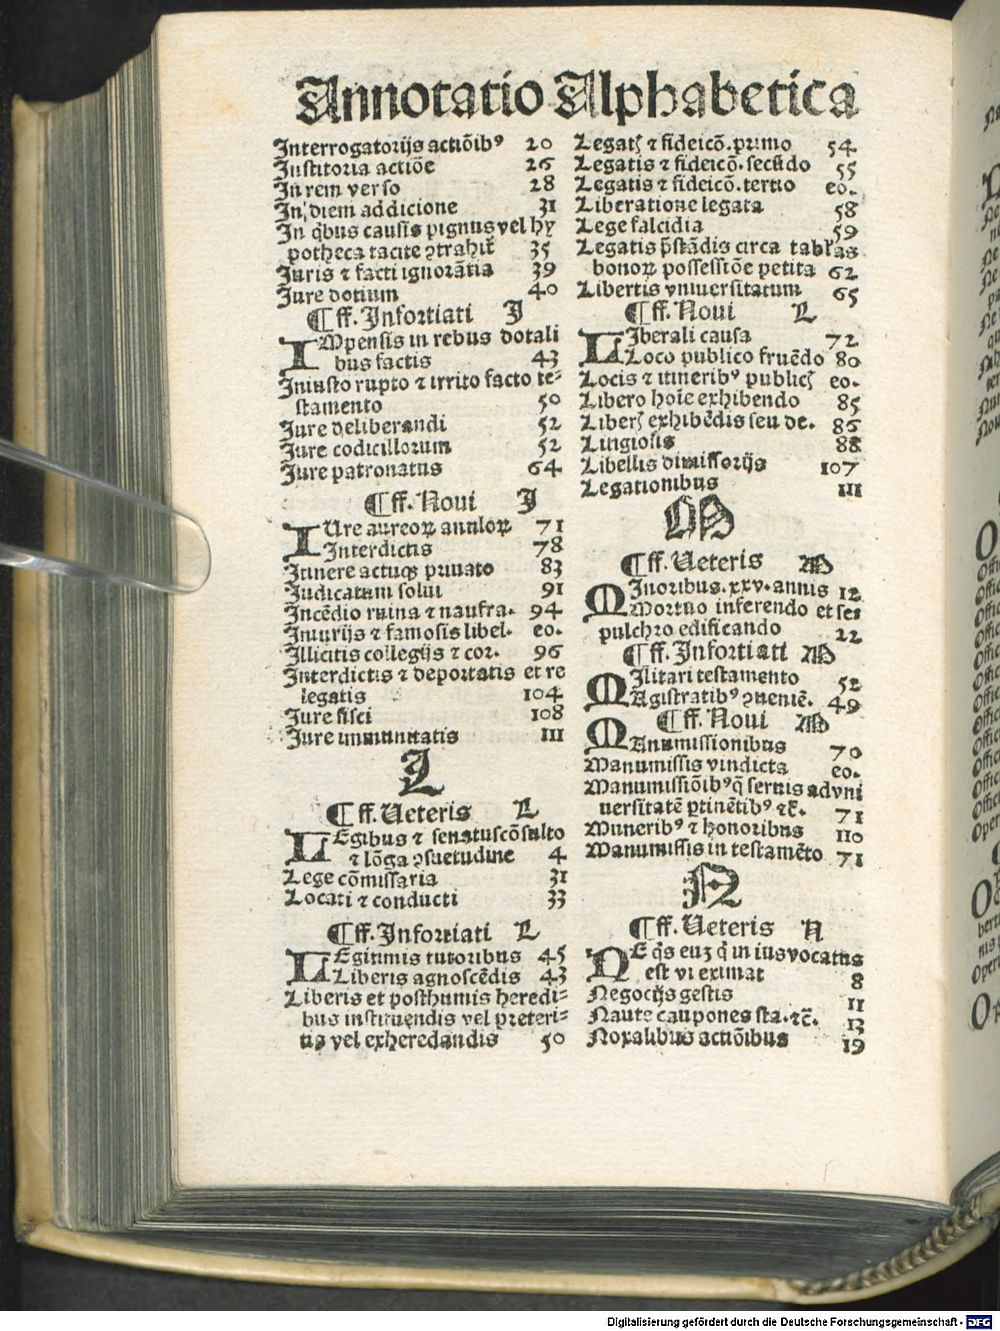 Annotatio Alphabetica
Interrogatorijs actiõibꝰ 20
Institoria actiõe 26
In rem verso 28
In diem addicione 31
In q̃bus causis pignus vel hy
potheca tacite ꝯtrahit̃ 35
Juris ⁊ facti ignorãtia 39
Jure dotium 40
¶ ff. Infortiati I
IMpensis in rebus dotali
bus factis 43
Iniusto rupto ⁊ irrito facto te⸗
stamento 50
Jure deliberandi 52
Jure codicillorum 52
Jure patronatus 64
¶ ff. Noui I
IUre aureoꝝ annloꝝ 71
Interdictis 78
Itinere actuqꝫ priuato 83
Iudicatum solui 91
Incẽdio ruina ⁊ naufra. 94
Iniurijs ⁊ famosis libel. eo.
Illicitis collegijs ⁊ cor. 96
Interdictis ⁊ deportatis et re
legatis 104
Jure fisci 108
Jure immunitatis 111
L
¶ ff. Ueteris L
LEgibus ⁊ senatuscõsulto
⁊ lõga ꝯsuetudine 4
Lege cõmissaria 31
Locati ⁊ conducti 33
¶ ff. Infortiati L
LEgitimis tutoribus 45
Liberis agnoscẽdis 43
Liberis et posthumis heredi⸗
bus instituendis vel preteri⸗
tis vel exheredandis 50
Legatꝭ ⁊ fideicõ. primo 54
Legatis ⁊ fideicõ. secũdo 55
Legatis ⁊ fideicõ. tertio eo.
Liberatione legata 58
Lege falcidia 59
Legatis p̃stãdis circa tabl̃as
bonoꝝ possessiõe petita 62
Libertis vniuersitatum 65
¶ ff. Noui L
LIberali causa 72
Loco publico fruẽdo 80
Locis ⁊ itineribꝰ publicꝭ eo.
Libero hoĩe exhibendo 85
Liberꝭ exhibẽdis seu de. 86
Lingiosis 88
Libellis dimissorijs 107
Legationibus 111
M
¶ ff. Ueteris M
MInoribus. xxv. annis 12
Mortuo inferendo et se⸗
pulchro edificando 22
¶ ff. Infortiati M
MIlitari testamento 52
Magistratibꝰ ꝯueniẽ. 49
¶ ff. Noui M
MAnumissionibus 70
Manumissis vindicta eo.
Manumissiõibꝰ q̃ seruis ad vni
uersitatẽ ꝑtinẽtibꝰ ⁊c̃. 71
Muneribꝰ ⁊ honoribus 110
Manumissis in testamẽto 71
N
¶ ff. Ueteris N
NE q̃s euꝫ q̃ in ius vocatus
est vi eximat 8
Negocijs gestis 11
Naute caupones sta. ⁊c̃. 13
Noxalibus actiõibus 19
Digitalisierung gefördert durch die Deutsche Forschungsgemeinschaft - DFG